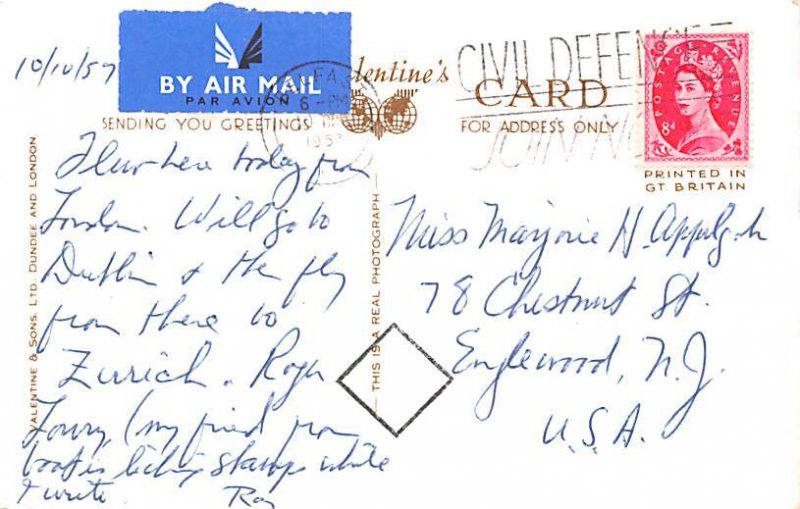 10/10/57
BY AIR MAIL
PAR AVION
Valentine's
CARD
SENDING YOU GREETINGS
FOR ADDRESS ONLY
CIVIL DEFENCE
JOIN NOW
6-PM
POSTAGE REVENUE
8d
PRINTED IN
GT. BRITAIN
VALENTINE & SONS. LTD. DUNDEE AND LONDON
THIS IS A REAL PHOTOGRAPH
Flew here today from
London. Will go to
Dublin & then fly
from there to
Zurich. Roger
Lowry, (my friend from
boat is licking stamps while
I write Ray
Miss Marjorie H.
78 Chestnut St.
Englewood, N.J.
U.S.A.